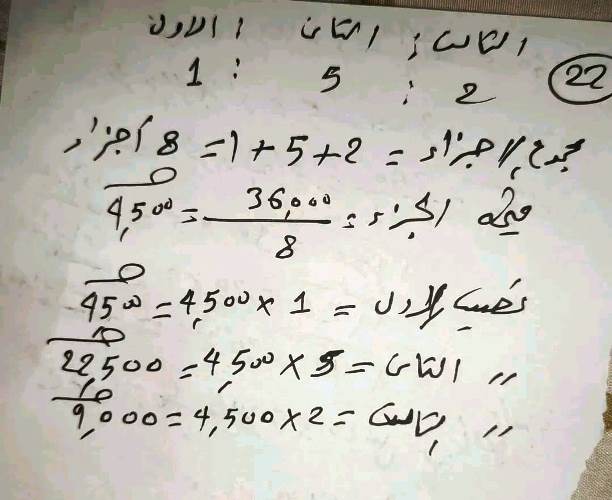 22 الثالث : الثانى : الاول
2 : 5 : 1
مجموع الاجزاء = 2+5+1 = 8 أجزاء
قيمة الجزء = 36,000 / 8 = 4,500 جـ
نصيب الاول = 1 × 4,500 = 4500 جـ
〃 الثانى = 5 × 4,500 = 22,500 جـ
〃 الثالث = 2 × 4,500 = 9,000 جـ